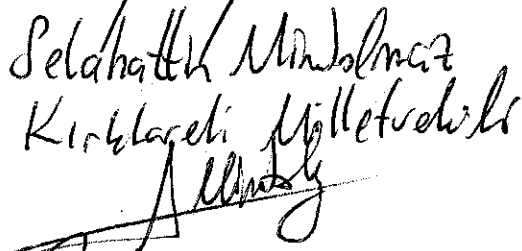 Selahattin Minsolmaz
Kırklareli Milletvekili